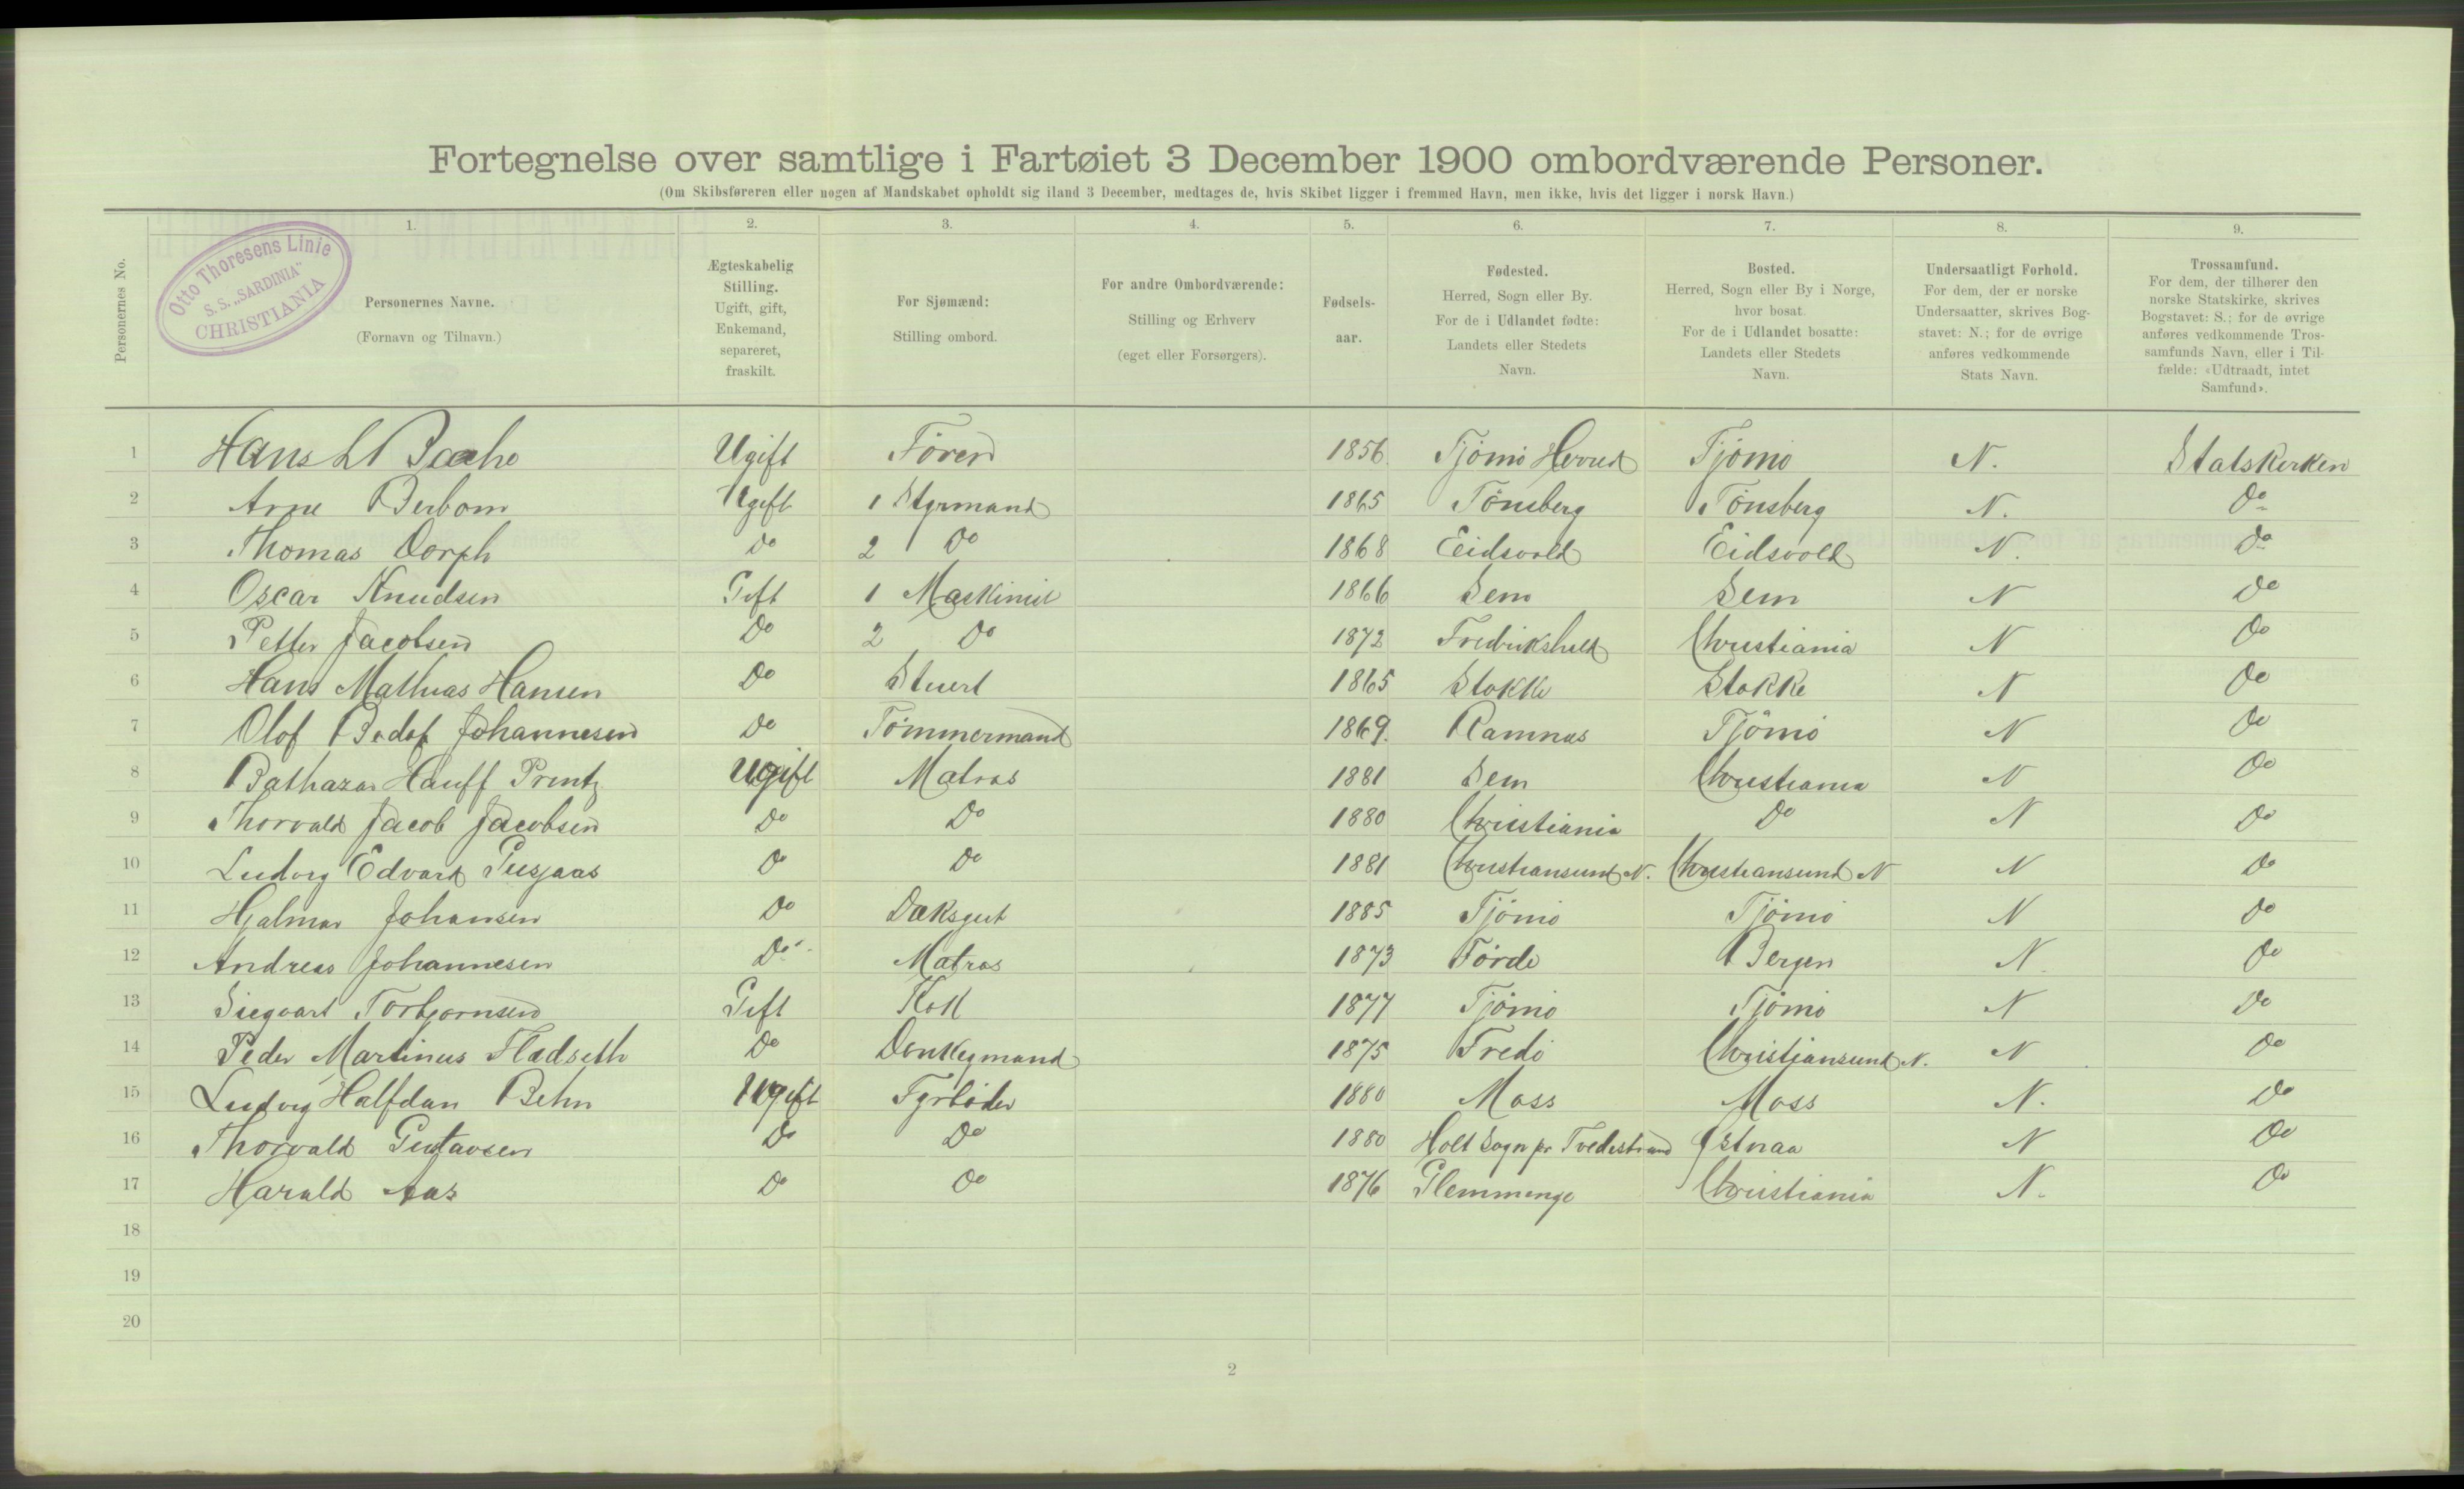 Fortegnelse over samtlige i Fartøiet 3 December 1900 ombordværende Personer.
(Om Skibsføreren eller nogen af Mandskabet opholdt sig iland 3 December, medtages de, hvis Skibet ligger i fremmed Havn, men ikke, hvis det ligger i norsk Havn.)
Personernes No.
1. 2. 3. 4. 5. 6. 7. 8. 9.
Otto Thoresens Linie
S.S. „SARDINIA"
CHRISTIANIA
Personernes Navne.
(Fornavn og Tilnavn.)
Ægteskabelig
Stilling.
Ugift, gift,
Enkemand,
separeret,
fraskilt.
For Sjømænd:
Stilling ombord.
For andre Ombordværende:
Stilling og Erhverv
(eget eller Forsørgers).
Fødsels-
aar.
Fødested.
Herred, Sogn eller By.
For de i Udlandet fødte:
Landets eller Stedets
Navn.
Bosted.
Herred, Sogn eller By i Norge,
hvor bosat.
For de i Udlandet bosatte:
Landets eller Stedets
Navn.
Undersaatligt Forhold.
For dem, der er norske
Undersaatter, skrives Bog-
stavet: N.; for de øvrige
anføres vedkommende
Stats Navn.
Trossamfund.
For dem, der tilhører den
norske Statskirke, skrives
Bogstavet: S.; for de øvrige
anføres vedkommende Tros-
samfunds Navn, eller i Til-
fælde: «Udtraadt, intet
Samfund».
1 Hans Ugift Fører 1856 Tjömö Herred Tjömö N. Statskirken
2 Arne Berbom Ugift 1 Styrmand 1865 Tönsberg Tönsberg N. Do
3 Thomas Dorph Do 2 Do 1868 Eidsvold Eidsvold N. Do
4 Oscar Knudsen Gift 1 Maskinist 1866 Sem Sem N Do
5 Petter Jacobsen Do 2 Do 1872 Fredrikshald Christiania N Do
6 Hans Mathias Hansen Do Stuert 1865 Stokke Stokke N Do
7 Olof Johannesen Do Tömmermand 1869. Ramnes Tjömö N Do
8 Balthazar Hauff Printz Ugift Matros 1881 Sem Christiania N Do
9 Thorvald Jacob Jacobsen Do Do 1880 Christiania Do N Do
10 Ludvig Edvard Do Do 1881 Christiansund N. Christiansund N N Do
11 Hjalmar Johansen Do Daksgut 1885 Tjömö Tjömö N Do
12 Andreas Johannesen Do Matros 1873 Förde Bergen N. Do
13 Siegvart Torbjornsen Gift Kok 1877 Tjömö Tjömö N Do
14 Peder Martinus Fladseth Do Donkeymand 1875 Fredö Christiansund N. N Do
15 Ludvig Halfdan Behn Ugift Fyrböder 1880 Moss Moss N. Do
16 Thorvald Gustavsen Do Do 1880 Holt Sogn pr Tvedestrand N Do
17 Harald Aas Do Do 1876 Glemminge Christiania N. Do
18
19
20
2